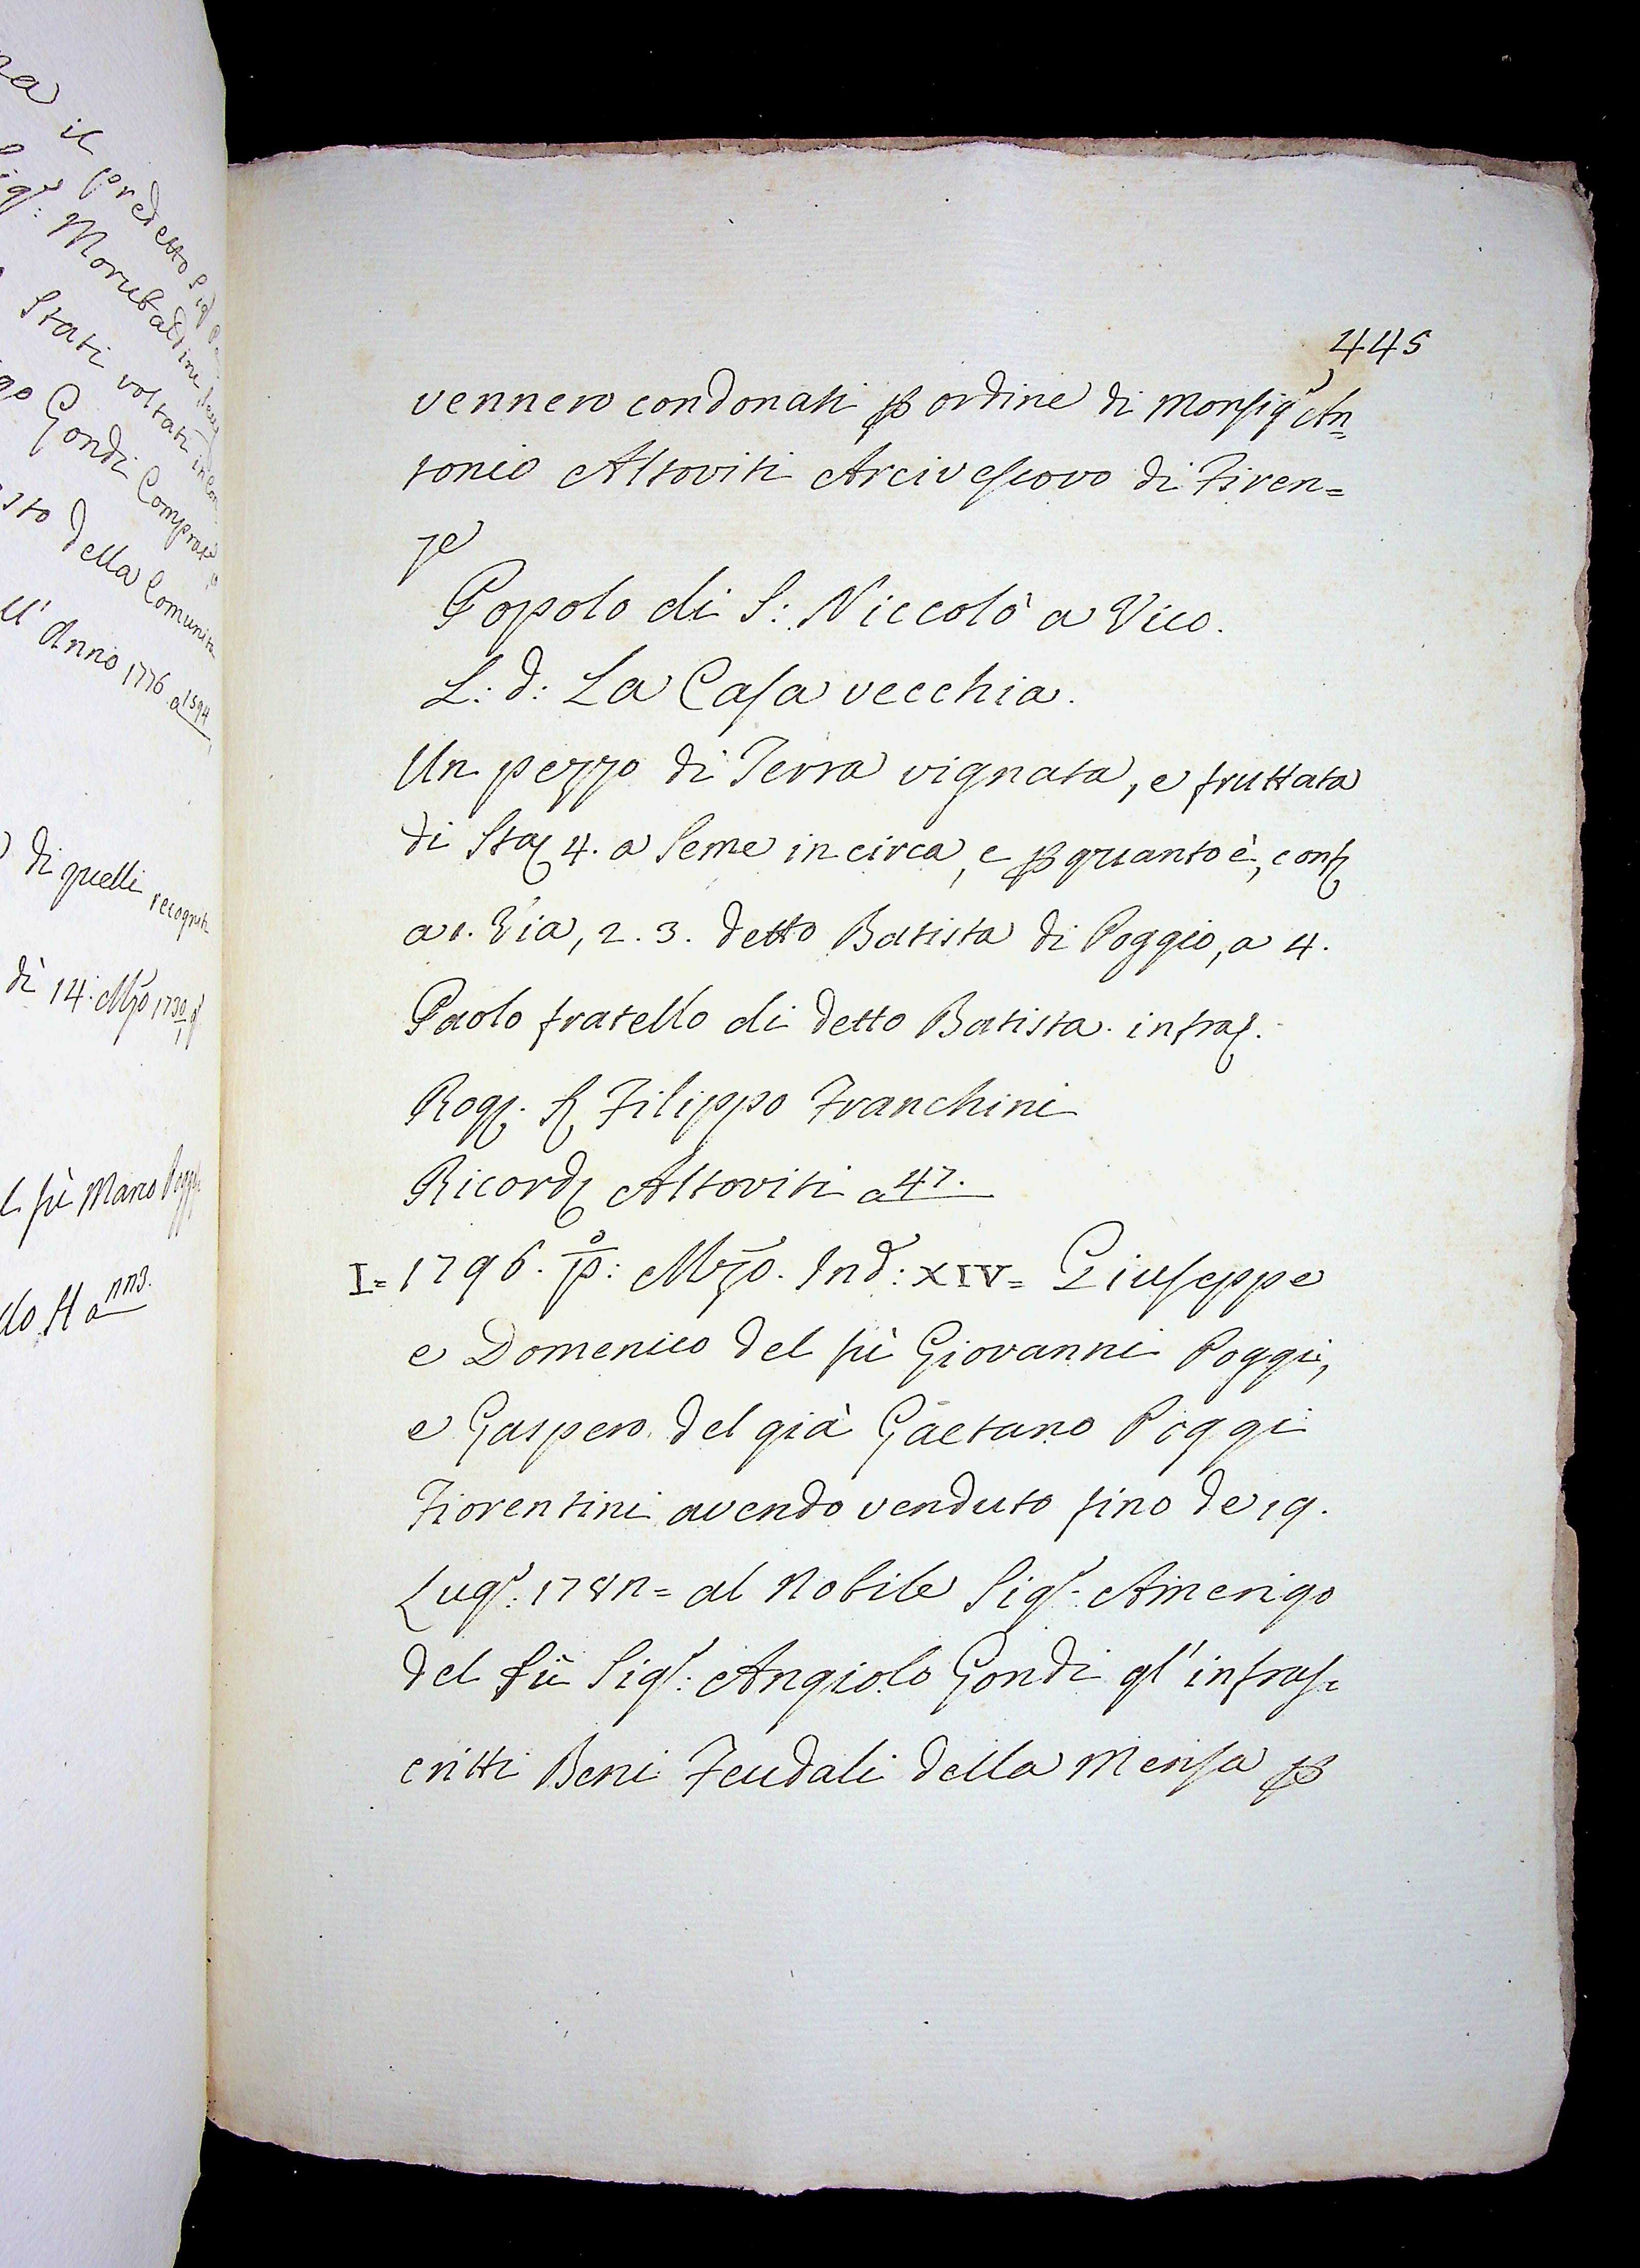 na il predetto Sig.
Sig.r: Morubaldini
Stati voltati in
go Gondi Comprat
sto della Comunità
ll' Anno 1776 a 1594
di quelli recogniti
dì 14. Mzo 1730
l fù Marco Poggi
do H a nn3.
445
vennero condonati ꝑ ordine di Monsig.r An=
tonio Altoviti Arcivescovo di Firen=
ze
Popolo di S: Niccolò a Vico.
L: d: La Casa vecchia.
Un pezzo di Terra vignata, e fruttata
di Sta 4. a Seme in circa, e ꝑ quanto è, conf
a 1. Via, 2. 3. detto Batista di Poggio, a 4.
Paolo fratello di detto Batista. infra.
Rog. S Filippo Franchini
Ricord Altoviti a 47.
I= 1796. p.o: Mzo. Ind: XIV= Giuseppe
e Domenico del fù Giovanni Poggi,
e Gaspero del già Gaetano Poggi
Fiorentini avendo venduto fino de 19.
Lug.o: 178n= al Nobile Sig.r Amerigo
del fù Sig.r: Angiolo Gondi gl'infras=
critti Beni Feudali della Mensa ꝑ